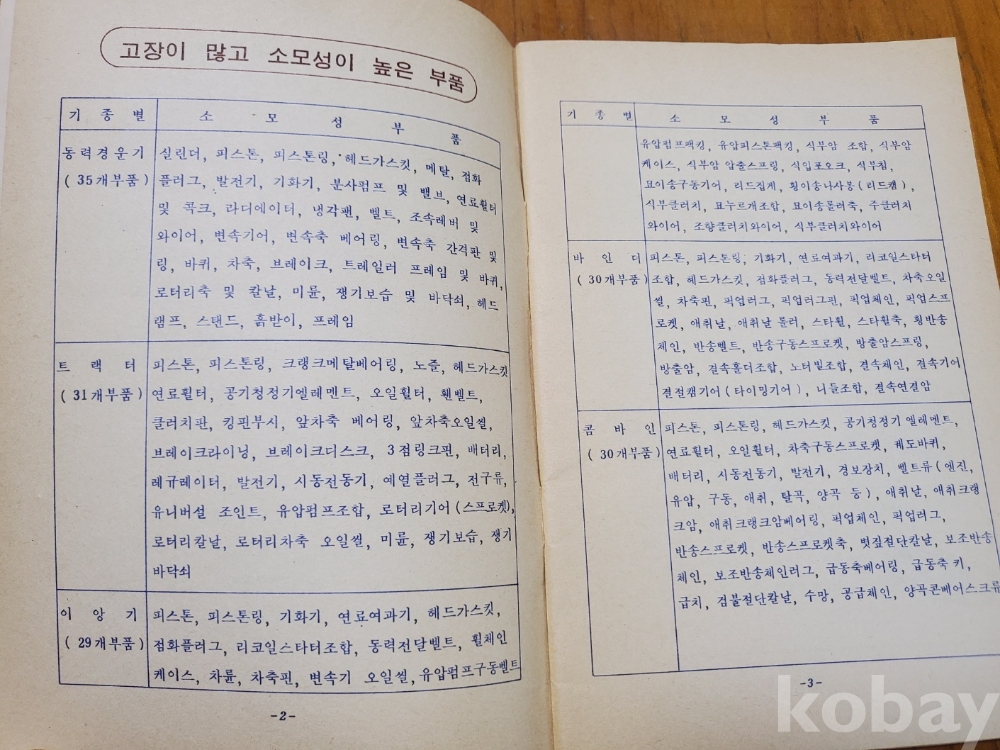 고장이 많고 소모성이 높은 부품
기 종 별 소 모 성 부 품
동력경운기 실린더, 피스톤, 피스톤링, 헤드가스킷, 메탈, 점화
(35개부품) 플러그, 발전기, 기화기, 분사펌프 및 밸브, 연료휠터
및 콕크, 라디에이터, 냉각팬, 벨트, 조속레버 및
와이어, 변속기어, 변속축 베어링, 변속축 간격판 및
링, 바퀴, 차축, 브레이크, 트레일러 프레임 및 바퀴,
로터리축 및 칼날, 미륜, 쟁기보습 및 바닥쇠, 헤드
램프, 스탠드, 흙받이, 프레임
트 랙 터 피스톤, 피스톤링, 크랭크메탈베어링, 노즐, 헤드가스킷
(31개부품) 연료휠터, 공기청정기엘레멘트, 오일휠터, 휀벨트,
클러치판, 킹핀부시, 앞차축 베어링, 앞차축오일씰,
브레이크라이닝, 브레이크디스크, 3점링크핀, 배터리,
레규레이터, 발전기, 시동전동기, 예열플러그, 전구류,
유니버설 조인트, 유압펌프조합, 로터리기어(스프로켓),
로터리칼날, 로터리차축 오일씰, 미륜, 쟁기보습, 쟁기
바닥쇠
이 앙 기 피스톤, 피스톤링, 기화기, 연료여과기, 헤드가스킷,
(29개부품) 점화플러그, 리코일스타터조합, 동력전달벨트, 휠체인
케이스, 차륜, 차축핀, 변속기 오일씰, 유압펌프구동벨트
-2-
기 종 별 소 모 성 부 품
유압펌프팩킹, 유압피스톤팩킹, 식부암 조합, 식부암
케이스, 식부암 압출스프링, 식입포오크, 식부침,
묘이송구동기어, 리드집게, 횡이송나사봉(리드캠),
식부클러치, 묘누르개조합, 묘이송롤러축, 주클러치
와이어, 조향클러치와이어, 식부클러치와이어
바 인 더 피스톤, 피스톤링, 기화기, 연료여과기, 리코일스타터
(30개부품) 조합, 헤드가스킷, 점화플러그, 동력전달벨트, 차축오일
씰, 차축핀, 픽업러그, 픽업러그핀, 픽업체인, 픽업스프
로켓, 애취날, 애취날 롤러, 스타휠, 스타휠축, 횡반송
체인, 반송벨트, 반송구동스프로켓, 방출암스프링,
방출암, 결속홀더조합, 노터빌조합, 결속체인, 결속기어
결절캠기어(타이밍기어), 니들조합, 결속연결암
콤 바 인 피스톤, 피스톤링, 헤드가스킷, 공기청정기 엘레멘트,
(30개부품) 연료휠터, 오일휠터, 차축구동스프로켓, 궤도바퀴,
배터리, 시동전동기, 발전기, 경보장치, 벨트류(엔진,
유압, 구동, 애취, 탈곡, 양곡 등), 애취날, 애취크랭
크암, 애취크랭크암베어링, 픽업체인, 픽업러그,
반송스프로켓, 반송스프로켓축, 볏짚절단칼날, 보조반송
체인, 보조반송체인러그, 급동축베어링, 급동축 키,
급치, 검불절단칼날, 수망, 공급체인, 양곡콘베어스크류
-3-
kobay